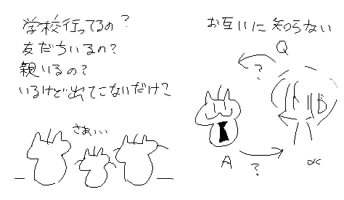 学校行ってるの?
友だちいるの?
親いるの?
いるけど出てこないだけ?
さあ…
お互いに知らない
Q
?
A
?